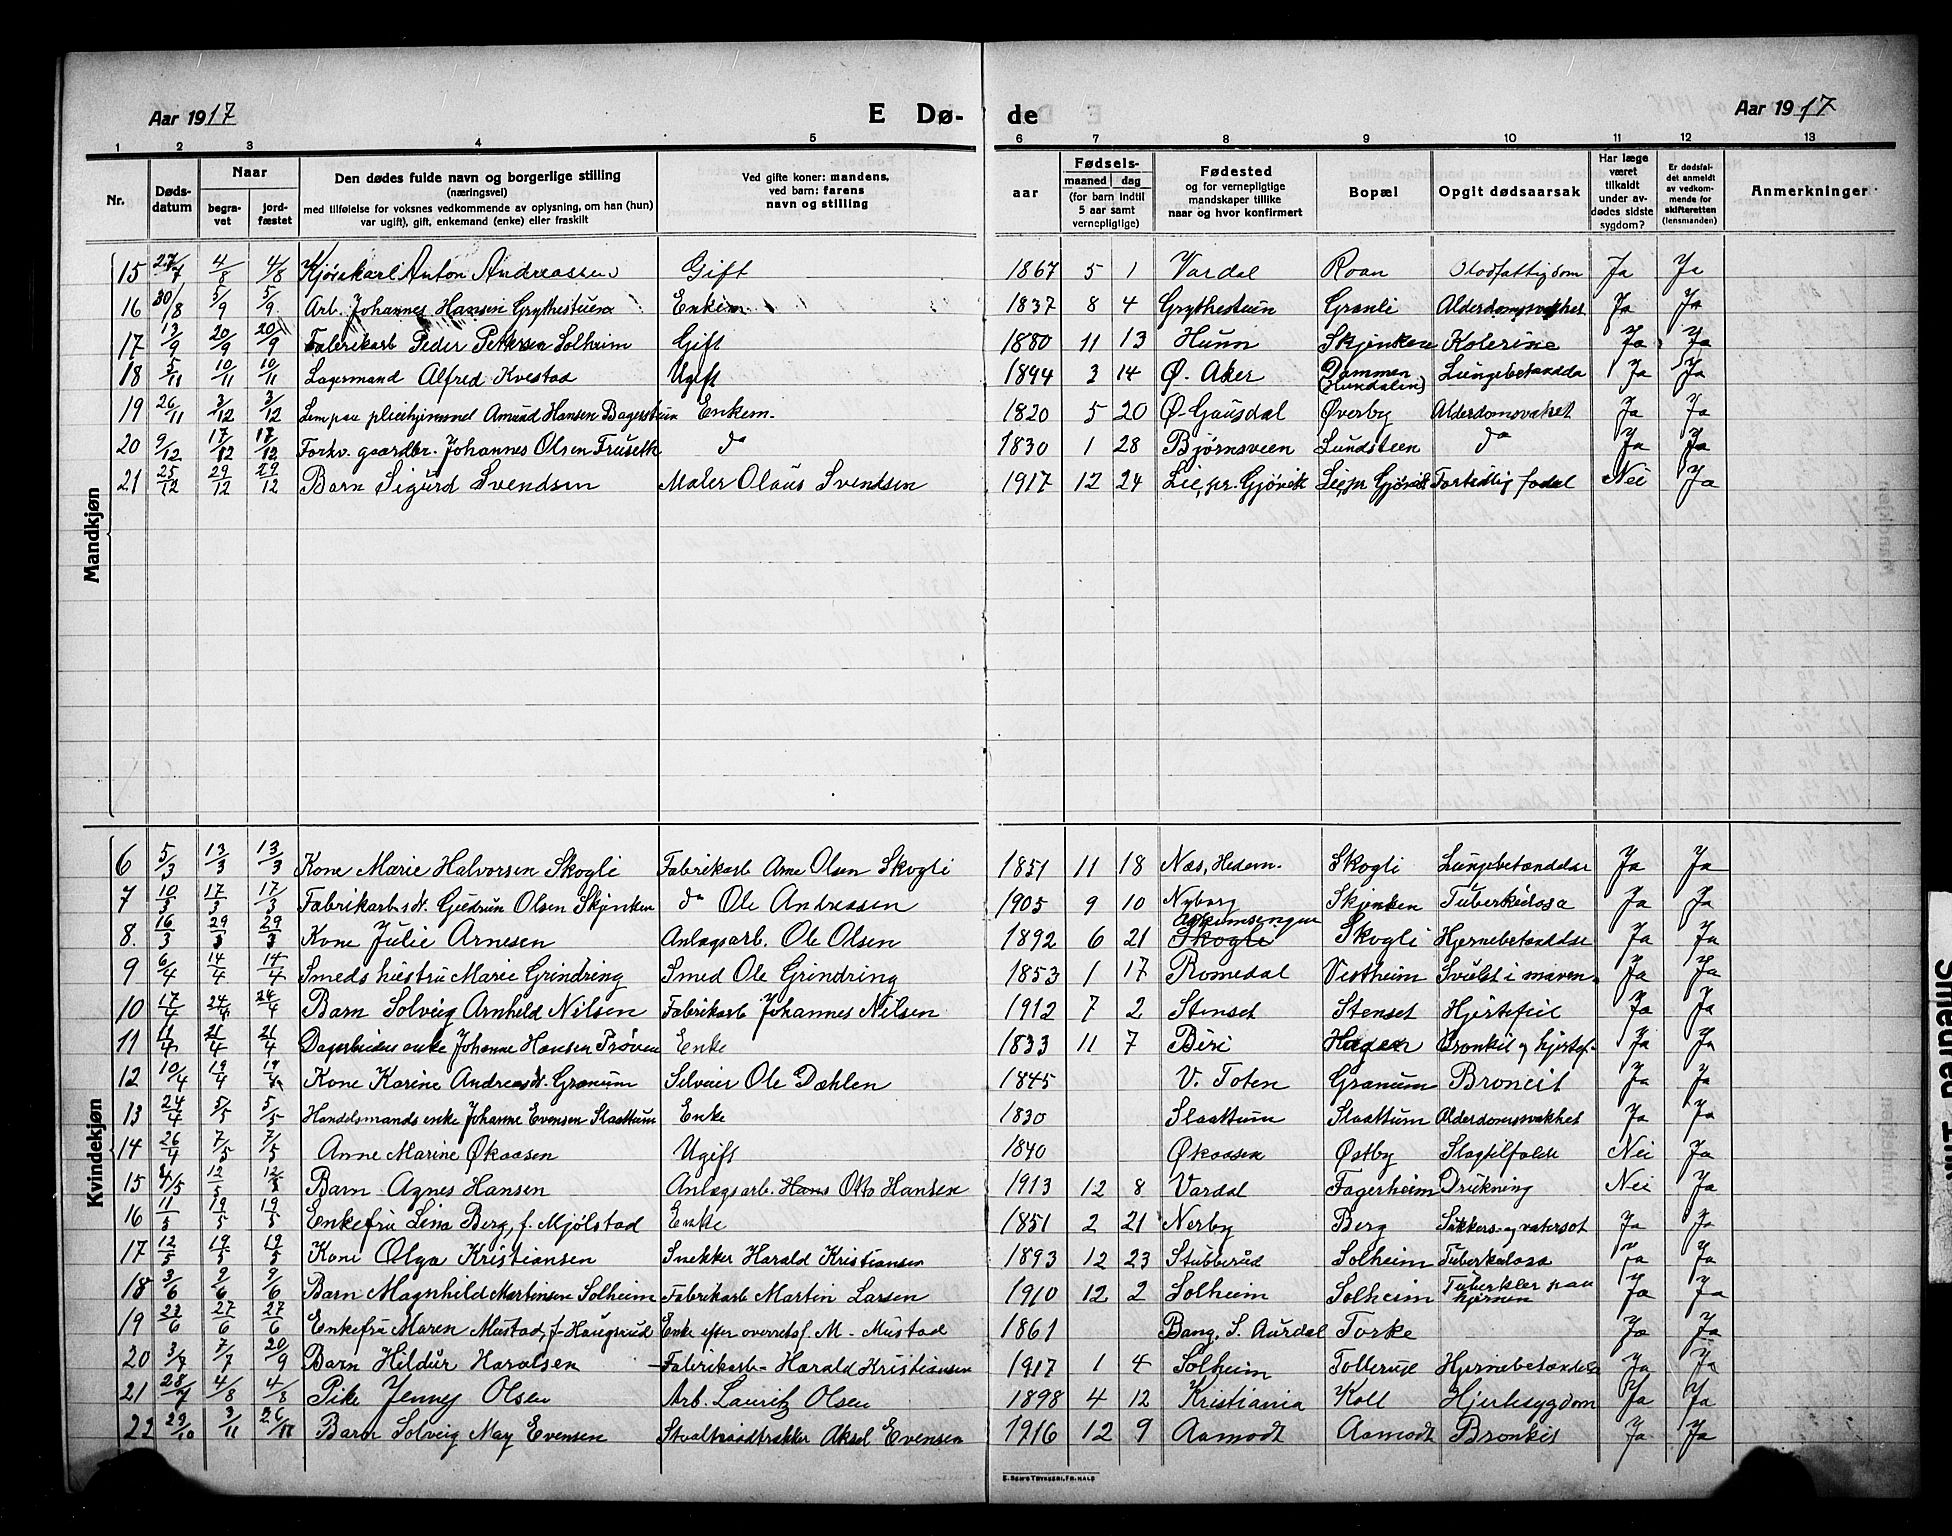 Aar 1917 E Dø- de Aar 1917
1 2 3 4 5 6 7 8 9 10 11 12 13
Nr. Døds-datum Naar begra-vet jord-fæstet Den dødes fulde navn og borgerlige stilling (næringsvei) med tilføielse for voksnes vedkommende av oplysning, om han (hun) var ugift, gift, enkemand (enke) eller fraskilt Ved gifte koner: mandens, ved barn: farens navn og stilling aar Fødsels- maaned dag (for barn indtil 5 aar samt vernepligtige) Fødested og for vernepligtige mandskaper tillike naar og hvor konfirmert Bopæl Opgit dødsaarsak Har læge været tilkaldt under av-dødes sidste sygdom? Er dødsfal-det anmeldt av vedkom-mende for skifteretten (lensmanden) Anmerkninger
Mandkjøn
15 27/7 4/8 4/8 Kjørekarl Anton Andreassen Gift 1867 5 1 Vardal Roan Blodfattigdom Ja Ja
16 30/8 5/9 5/9 Arb. Johannes Hansen Grythestuen Enkem 1837 8 4 Grythestuen Granli Alderdomsvakhet Ja Ja
17 13/9 20/9 20/9 Fabrikarb Peder Pettersen Solheim Gift 1880 11 13 Hunn Skjenken Kolerine Ja Ja
18 5/11 10/11 10/11 Lagermand Alfred Kvestad Ugift 1894 3 14 Ø. Aker Dammen (Hundalen) Lungebetændda Ja Ja
19 26/11 3/12 3/12 Lem paa pleiehjemmet Amund Hansen Bagerstuen Enkem. 1820 5 20 Ø-Gausdal Øverby Alderdomsvakhet Ja Ja
20 9/12 17/12 17/12 Forhv. gaardbr. Johannes Olsen Fruseth do 1830 1 28 Bjørnsveen Lundsteen do Ja Ja
21 25/12 29/12 29/12 Barn Sigurd Svendsen Maler Olaus Svendsen 1917 12 24 Lie, pr. Gjövik Lie, pr Gjövik Fortidlig fødsel Nei Ja
Kvindekjøn
6 5/3 13/3 13/3 Kone Marie Halvorsen Skogli Fabrikarb Arne Olsen Skogli 1851 11 18 Næs, Hedem. Skogli Lungebetændelse Ja Ja
7 10/3 17/3 17/3 Fabrikarb.s dt. Gudrun Olsen Skjenken do Ole Andreasen 1905 9 10 Nyborg Skjenken Tuberkulose Ja Ja
8. 16/3 29/3 29/3 Kone Julie Arnesen Anlægsarb. Ole Olsen 1892 6 21 Skogli Skogli Hjernebetændelse Ja Ja
9 6/4 14/4 14/4 Smeds hustru Marie Grindring Smed Ole Grindring 1853 1 17 Romedal Vestheim Svulst i maven Ja Ja
10 17/4 24/4 24/4 Barn Solveig Arnheld Nilsen Fabrikarb Johannes Nilsen 1912 7 2 Stenset Stenset Hjertefeil Ja Ja
11 11/4 21/4 21/4 Dagarbeiders enke Johanne Hansen Prøven Enke 1833 11 7 Biri Hagen Bronkit og hjertef. Ja Ja
12 10/4 19/4 19/4 Kone Karine Andreasdt. Granum Selveier Ole Dæhlen 1845 V. Toten Granum Broncit Ja Ja
13 24/4 5/5 5/5 Handelsmands enke Johanne Evensen Slaattum Enke 1830 Slaattum Slaattum Alderdomssvakhet Ja Ja
14 26/4 7/5 7/5 Anne Marine Økaasen Ugift 1840 Økaasen Østby Slagtilfælde Nei Ja
15 4/5 12/5 12/5 Barn Agnes Hansen Anlægsarb. Hans Otto Hansen 1913 12 8 Vardal Fagerheim Drukning Nei Ja
16 11/5 19/5 19/5 Enkefru Lina Berg, f. Mjölstad Enke 1851 2 21 Nerby Berg Sukkers- og vatersot Ja Ja
17 12/5 19/5 19/5 Kone Olga Kristiansen Snekker Harald Kristiansen 1893 12 23 Stubberud Solheim Tuberkulose Ja Ja
18 3/6 9/6 9/6 Barn Magnhild Martinsen Solheim Fabrikarb Martin Larsen 1910 12 2 Solheim Solheim Tuberkler paa hjernen Ja Ja
19 22/6 27/6 27/6 Enkefru Maren Mustad, f Haugsrud Enke efter overretsf. M. Mustad 1861 Bang, S. Aurdal Torke Ja Ja
20 3/7 7/7 20/9 Barn Hildur Haralsen Fabrikarb- Harald Kristiansen 1917 1 4 Solheim Tollerud Hjernebetændelse Ja Ja
21 28/7 4/8 4/8 Pike Jenny Olsen Arb. Lauritz Olsen 1898 4 12 Kristiania Koll Hjertesygdom Ja Ja
22 23/10 3/11 26/11 Barn Solveig May Evensen Staaltraadtrækker Aksel Evensen 1916 12 9 Aamodt Aamodt Bronkit Ja Ja